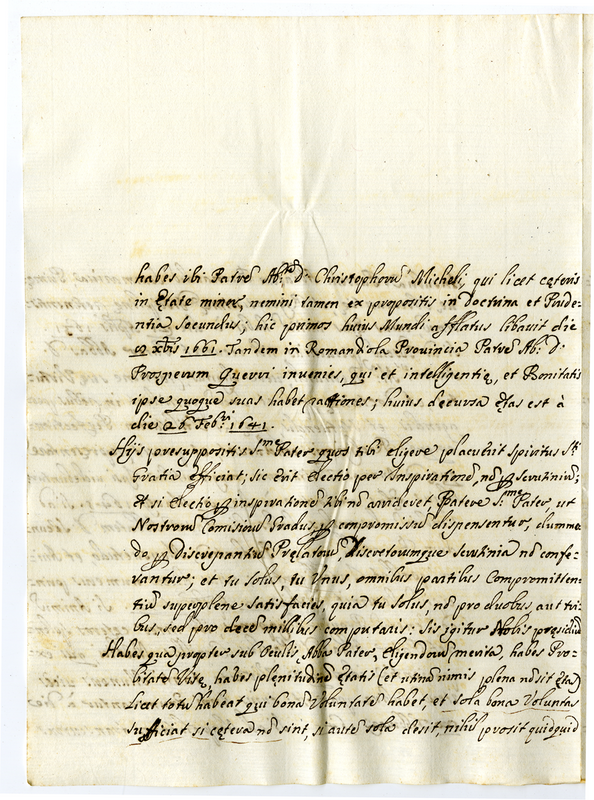 habes ibi Patrē Ab:ᵉᵐ d. Christophorū Micheli, qui licet cęteris
in Ętate minor, nemini tamen ex propositis in Doctrina et Prude-
ntia secundus; hic primos huius Mundi afflatus libavit die
xbris 1661. Tandem in Romandiola Provincia Patrē Ab: d.
Prosperum Guerri invenies, qui et intelligentię, et Bonitatis
ipse quoque suas habet ractiones; huius decursa Ętas est à
die 26 Feb:ʳⁱ 1641.
Hijs presuppositis S:ᵐᵉ Pater quos tibi elijere placuerit Spiritus S:ᵗⁱ
Gratia efficiat; sic erit electio per inspirationē, nō ꝑ scrutiniū;
et si electio ꝑ inspirationē tibi nō arrideret, Patere S:ᵐᵉ Pater ut
Nostrorū Comisiorū Gradus ꝑ compromissū dispensentur, dummo
do ꝑ Discrepantiū Pręlatorū, Discretorumque scrutinia nō confe-
rantur; et tu solus, tu Unus, omnibus partibus Compromitten-
tiū superplene satisfacies, quia tu solus, nō pro duobus aut tri-
bus, sed pro decē milibus computaris: sis igitur Nobis pręsidiū
Habes qua propter sub Oculis Abba Pater, elijendorū merita, habes Pro-
bitatē Vitę, habes plenitudinē Ętatis (et utinā nimis plena nō sit Ętas)
Licet totū habeat qui bonā Voluntatē habet, et sola bona Voluntas
sufficiat si cętera nō sint, si autē sola desit, nihil prosit quidquid